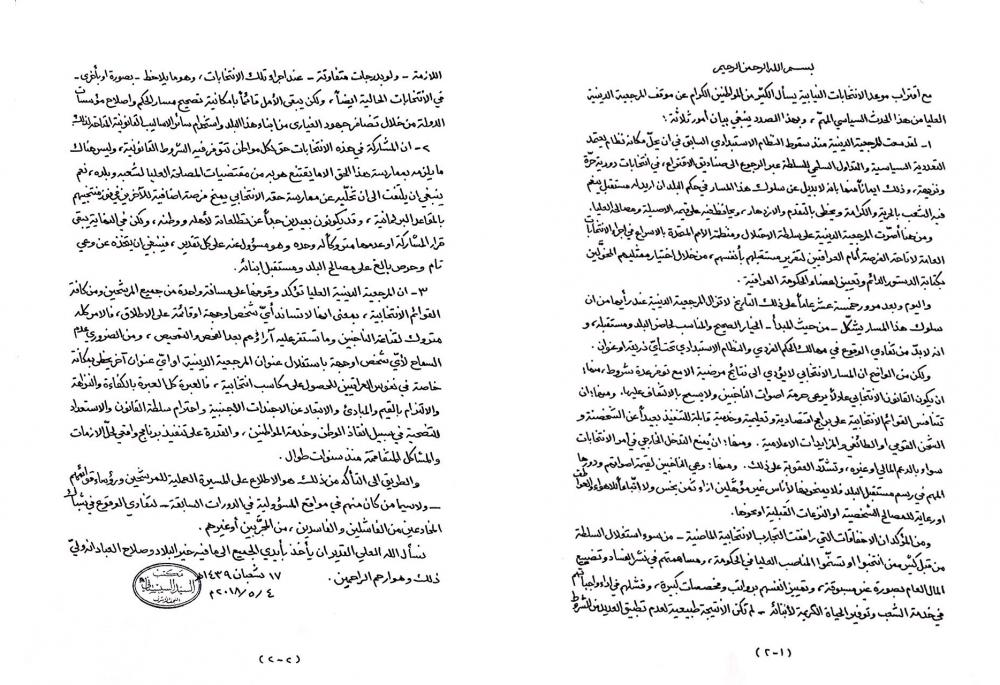 بسم الله الرحمن الرحيم
مع اقتراب موعد الانتخابات النيابية يسأل الكثير من المواطنين الكرام عن موقف المرجعية الدينية
العليا من هذا الحدث السياسي المهم، وبهذا الصدد ينبغي بيان أمور ثلاثة:
١- لقد سعت المرجعية الدينية منذ سقوط النظام الاستبدادي السابق في ان يحلّ مكانه نظام يعتمد
التعددية السياسية والتداول السلمي للسلطة عبر الرجوع الى صناديق الاقتراع، في انتخابات دورية حرّة
ونزيهة، وذلك ايماناً منها بانه لا بديل عن سلوك هذا المسار في حكم البلد ان اريد له مستقبل ينعم
فيه الشعب بالحرية والكرامة ويحظى بالتقدم والازدهار، ويحافظ فيه على قيمه الاصيلة ومصالحه العليا.
ومن هنا أصرّت المرجعية الدينية على سلطة الاحتلال ومنظمة الامم المتحدة بالاسراع في اجراء الانتخابات
العامة لاتاحة الفرصة أمام العراقيين لتقرير مستقبلهم بأنفسهم، من خلال اختيار ممثليهم المخوَّلين
بكتابة الدستور الدائم وتعيين اعضاء الحكومة العراقية.
واليوم وبعد مرور خمسة عشر عاماً على ذلك التاريخ لا تزال المرجعية الدينية عند رأيها من ان
سلوك هذا المسار يشكّل - من حيث المبدأ - الخيار الصحيح والمناسب لحاضر البلد ومستقبله، و
انه لا بدّ من تفادي الوقوع في مهالك الحكم الفردي والنظام الاستبدادي تحت أيّ ذريعة او عنوان.
ولكن من الواضح ان المسار الانتخابي لا يؤدي الى نتائج مرضية الا مع توفر عدة شروط، منها:
ان يكون القانون الانتخابي عادلاً يرعى حرمة اصوات الناخبين ولا يسمح بالالتفاف عليها. ومنها: ان
تتنافس القوائم الانتخابية على برامج اقتصادية وتعليمية وخدمية قابلة للتنفيذ بعيداً عن الشخصنة و
الشحن القومي او الطائفي والمزايدات الاعلامية. ومنها: ان يُمنع التدخل الخارجي في امر الانتخابات
سواء بالدعم المالي او غيره، وتشدّد العقوبة على ذلك. ومنها: وعي الناخبين لقيمة اصواتهم ودورها
المهم في رسم مستقبل البلد فلا يمنحونها لأناس غير مؤهلين ازاء ثمن بخس ولا اتّباعاً للأهواء والعواطف
او رعاية للمصالح الشخصية او النزعات القَبلية او نحوها.
ومن المؤكد ان الاخفاقات التي رافقت التجارب الانتخابية الماضية - من سوء استغلال السلطة
من قبل كثير ممن انتخبوا او تسنّموا المناصب العليا في الحكومة، ومساهمتهم في نشر الفساد وتضييع
المال العام بصورة غير مسبوقة، وتمييز انفسهم برواتب ومخصصات كبيرة، وفشلهم في اداء واجباتهم
في خدمة الشعب وتوفير الحياة الكريمة لأبنائه - لم تكن الا نتيجة طبيعية لعدم تطبيق العديد من الشروط
(٢-١)
اللازمة - ولو بدرجات متفاوتة - عند اجراء تلك الانتخابات، وهو ما يلاحظ - بصورة او بأخرى -
في الانتخابات الحالية ايضاً، ولكن يبقى الأمل قائماً بإمكانية تصحيح مسار الحكم واصلاح مؤسسات
الدولة من خلال تضافر جهود الغيارى من ابناء هذا البلد واستخدام سائر الاساليب القانونية المتاحة لذلك.
٢- ان المشاركة في هذه الانتخابات حق لكل مواطن تتوفر فيه الشروط القانونية، وليس هناك
ما يلزمه بممارسة هذا الحق الا ما يقتنع هو به من مقتضيات المصلحة العليا لشعبه وبلده، نعم
ينبغي ان يلتفت الى ان تخلّيه عن ممارسة حقه الانتخابي يمنح فرصة اضافية للآخرين في فوز منتخبيهم
بالمقاعد البرلمانية، وقد يكونون بعيدين جداً عن تطلعاته لأهله ووطنه، ولكن في النهاية يبقى
قرار المشاركة او عدمها متروكاً له وحده وهو مسؤول عنه على كل تقدير، فينبغي ان يتخذه عن وعي
تام وحرص بالغ على مصالح البلد ومستقبل ابنائه.
٣- ان المرجعية الدينية العليا تؤكد وقوفها على مسافة واحدة من جميع المرشحين ومن كافة
القوائم الانتخابية، بمعنى انها لا تساند أيّ شخص او جهة او قائمة على الاطلاق، فالامر كله
متروك لقناعة الناخبين وما تستقر عليه آراؤهم بعد الفحص والتمحيص، ومن الضروري عدم
السماح لأي شخص او جهة باستغلال عنوان المرجعية الدينية او اي عنوان آخر يحظى بمكانة
خاصة في نفوس العراقيين للحصول على مكاسب انتخابية، فالعبرة كل العبرة بالكفاءة والنزاهة
والالتزام بالقيم والمبادئ والابتعاد عن الاجندات الاجنبية واحترام سلطة القانون والاستعداد
للتضحية في سبيل انقاذ الوطن وخدمة المواطنين، والقدرة على تنفيذ برنامج واقعي لحلّ الازمات
والمشاكل المتفاقمة منذ سنوات طوال.
والطريق الى التأكد من ذلك هو الاطلاع على المسيرة العملية للمرشحين ورؤساء قوائمهم
- ولا سيما من كان منهم في مواقع المسؤولية في الدورات السابقة - لتفادي الوقوع في شباك
المخادعين من الفاشلين والفاسدين، من المجرَّبين أو غيرهم.
نسأل الله العلي القدير ان يأخذ بأيدي الجميع الى ما فيه خير البلاد وصلاح العباد انه وليّ
ذلك وهو ارحم الراحمين.
١٧ شعبان ١٤٣٩هـ
٤/٥/٢٠١٨م
مكتب
السيد السيستاني
(٢-٢)